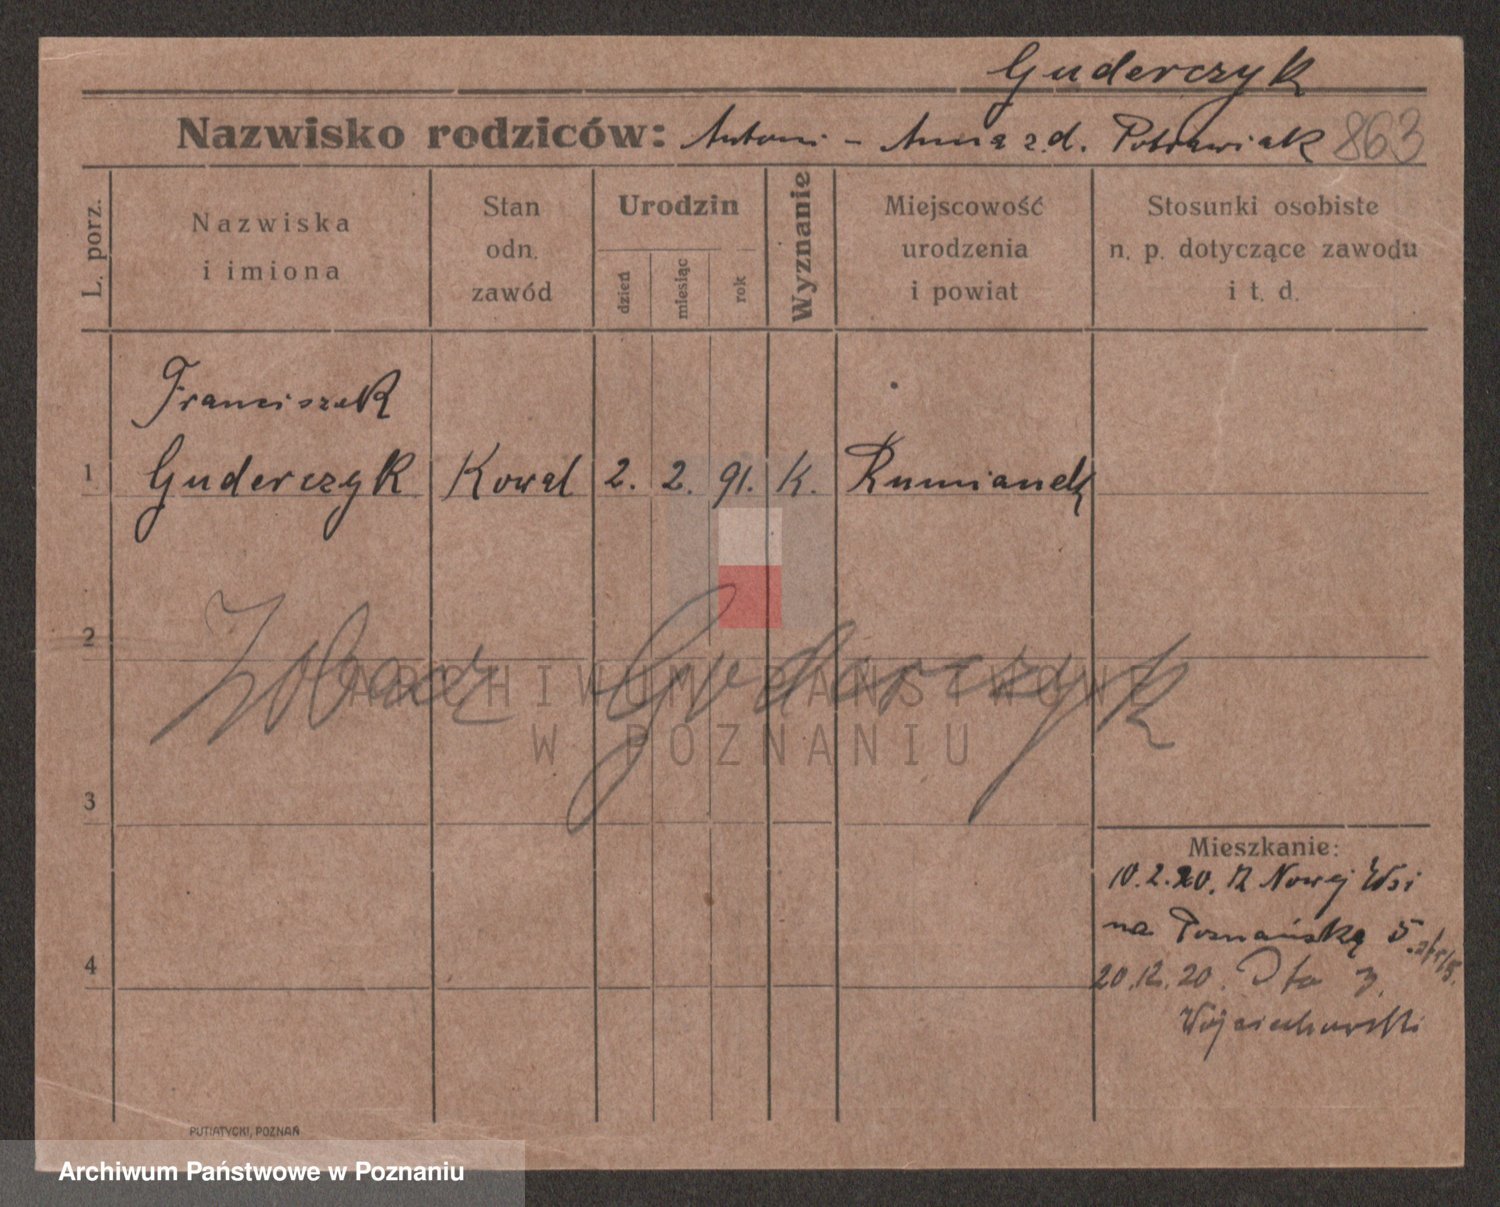 Guderczyk
Nazwisko rodziców: Antoni - Anna z.d. Potrawiak 863
L. porz.
Nazwiska
i imiona
Stan
odn.
zawód
Urodzin
dzień
miesiąc
rok
Wyznanie
Miejscowość
urodzenia
i powiat
Stosunki osobiste
n. p. dotyczące zawodu
i t. d.
Franciszek
1 Guderczyk Kowal 2. 2. 91. K. Rumianek
2
Zobacz Guderczyk
ARCHIWUM PAŃSTWOWE
W POZNANIU
3
Mieszkanie:
10.2.20. Z Nowej Wsi
na Poznańską 5
4
20.12.20.
Wojciechowski
PUTIATYCKI, POZNAŃ
Archiwum Państwowe w Poznaniu